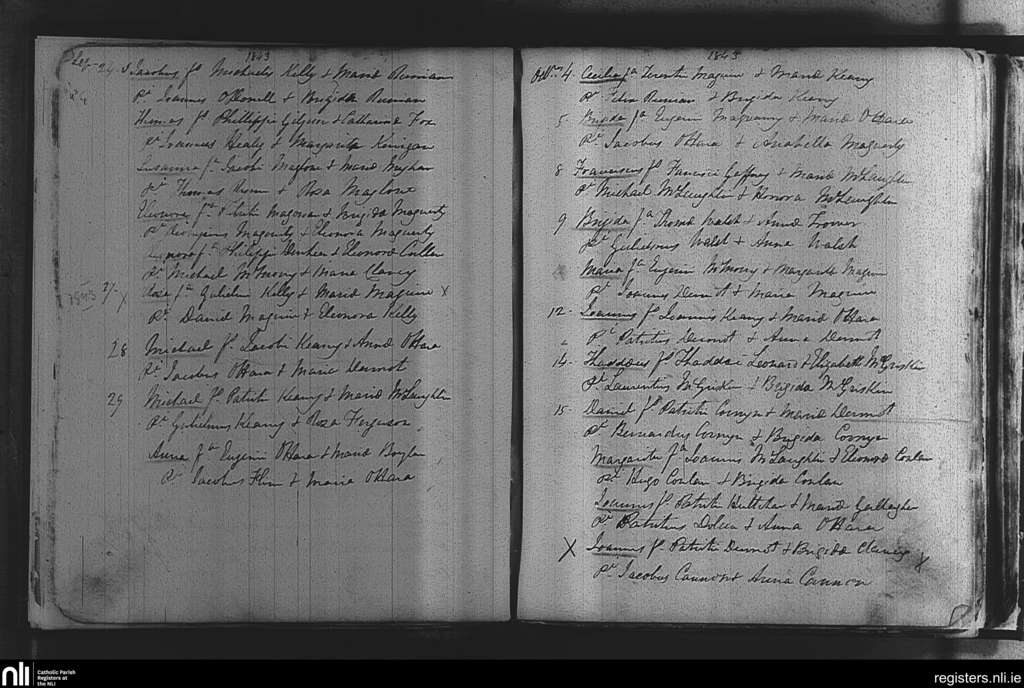 1843
Sep. 24 Jacobus fs Michaelis Kelly & Maria
Pr Joannes O'Donnell & Brigida
24 Thomas fs Philippi Gilgunn & Catharina Fox
Pr Joannes Healy & Margarita Finigan
Susanna fa Jacobi Maglone & Maria Meghan
Pr Thomas & Rosa Maglone
Eleonora fa Patritii & Brigida Magverty
Pr Magverty & Eleonora Magverty
fa Philippi & Eleonora Cullen
Pr Michael McMorry & Maria Clancy
1843 27 X Rosa fa Gulielmi Kelly & Maria Maguire X
Pr Daniel Maguire & Eleonora Kelly
28 Michael fs Jacobi Keany & Anna O'Hara
Pr Jacobus O'Hara & Maria Dermot
29 Michael fs Patritii Keany & Maria McLaughlin
Pr Gulielmus Keany & Rosa Ferguson
Anna fa Eugenii O'Hara & Maria Boylan
Pr Jacobus Flinn & Maria O'Hara
1843
4 Cecilia fa Terentii Maguire & Maria Keany
Pr Felix & Brigida Keany
5 Brigida fa Eugenii & Maria O'Hara
Pr Jacobus O'Hara & Anabella Magverty
8 Franciscus fs Francisci Gaffney & Maria McLaughlin
Pr Michael McLaughlin & Honora McLaughlin
9 Brigida fa Thoma Walsh & Anna
Pr Gulielmus Walsh & Anna Walsh
Maria fa Eugenii McMorry & Margarita Maguire
Pr Joannes Dermot & Maria Maguire
12 Joannes fs Joannis Keany & Maria O'Hara
Pr Patritius Dermot & Anna Dermot
14 Thaddaeus fs Thaddaei Leonard & Elizabeth McGriskin
Pr Laurentius McGriskin & Brigida McGriskin
15 Daniel fs Patritii Conyn & Maria Dermot
Pr Bernardus Conyn & Brigida Conyn
Margarita fa Joannis McLaughlin & Eleonora Conlan
Pr Hugo Conlan & Brigida Conlan
Joannes fs Patritii & Maria Gallagher
Pr Patritius Dolan & Anna O'Hara
X Joannes fs Patritii Dermot & Brigida Clancy X
Pr Jacobus Cannon & Anna Cannon
nli Catholic Parish
Registers at
the NLI
registers.nli.ie